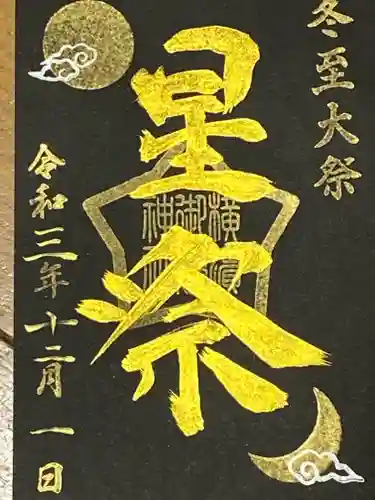 冬至大祭
星祭
横濱
御嶽
神社
令和三年十二月一日